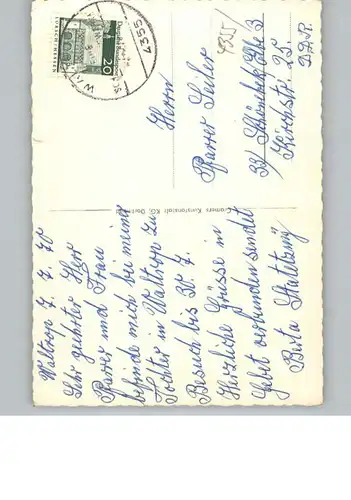 Waltrop 7. 7. 70
Sehr geehrter Herr
Pfarrer und Frau
befinde mich bei meiner
Tochter in Waltrop zu
Besuch bis 30. 7.
Herzliche Grüsse in
Gebet verbunden sendet
Berta
Cramers Kunstanstalt KG, Dortmund
20
4355
4355
Herrn
Pfarrer Seiler
33 Schönebeck/Elbe 3
Kirchstr. 25.
D.D.R.